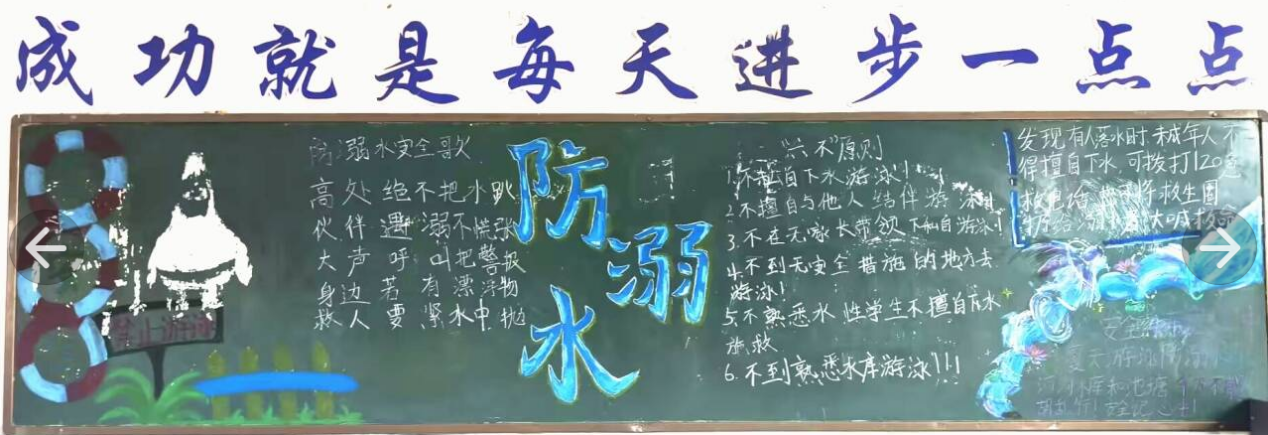 成功就是每天进步一点点
防溺水安全歌
高处绝不把水趴
伙伴遇溺不慌张
大声呼叫把警报
身边若有漂浮物
救人要紧水中抛
禁止游泳
防溺水
六不原则
1.不私自下水游泳!
2.不擅自与他人结伴游泳!
3.不在无家长带领下私自游泳!
4.不到无安全措施的地方去
游泳!
5.不熟悉水性学生不擅自下水
施救
6.不到熟悉水库游泳!!!
发现有人落水时未成年人不
得擅自下水 可拨打120急
救电话
夏天游泳
河水库和池塘